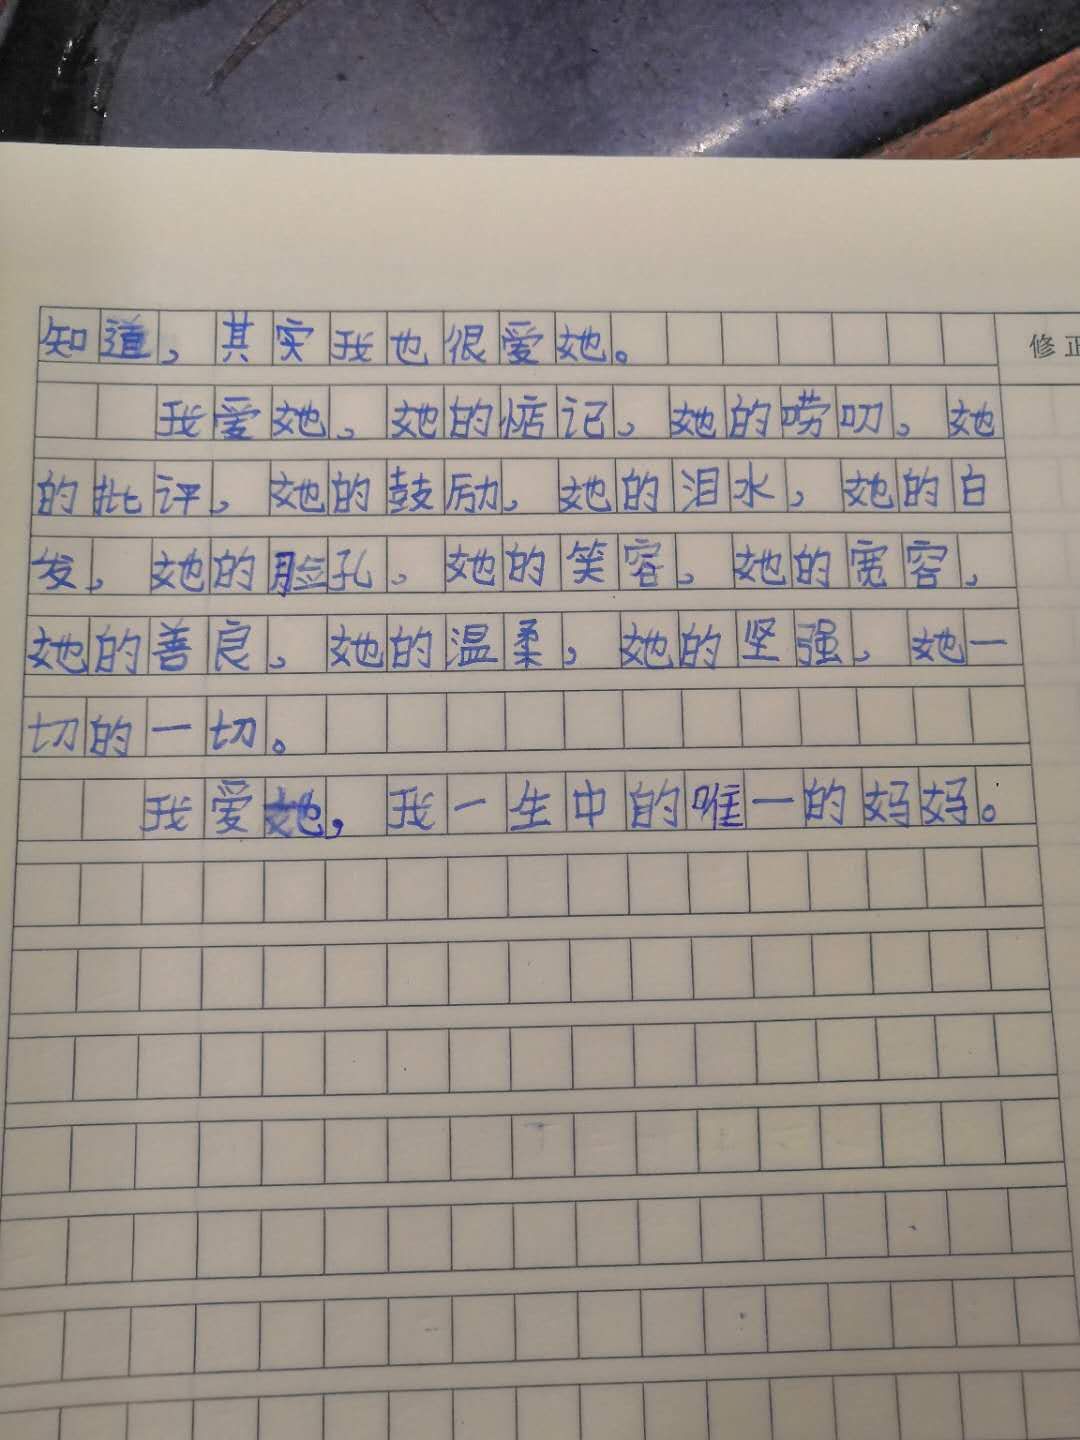 知道，其实我也很爱她。
修正
我爱她，她的惦记，她的唠叨，她
的批评，她的鼓励，她的泪水，她的白
发，她的脸孔，她的笑容，她的宽容，
她的善良，她的温柔，她的坚强，她一
切的一切。
我爱她，我一生中的唯一的妈妈。